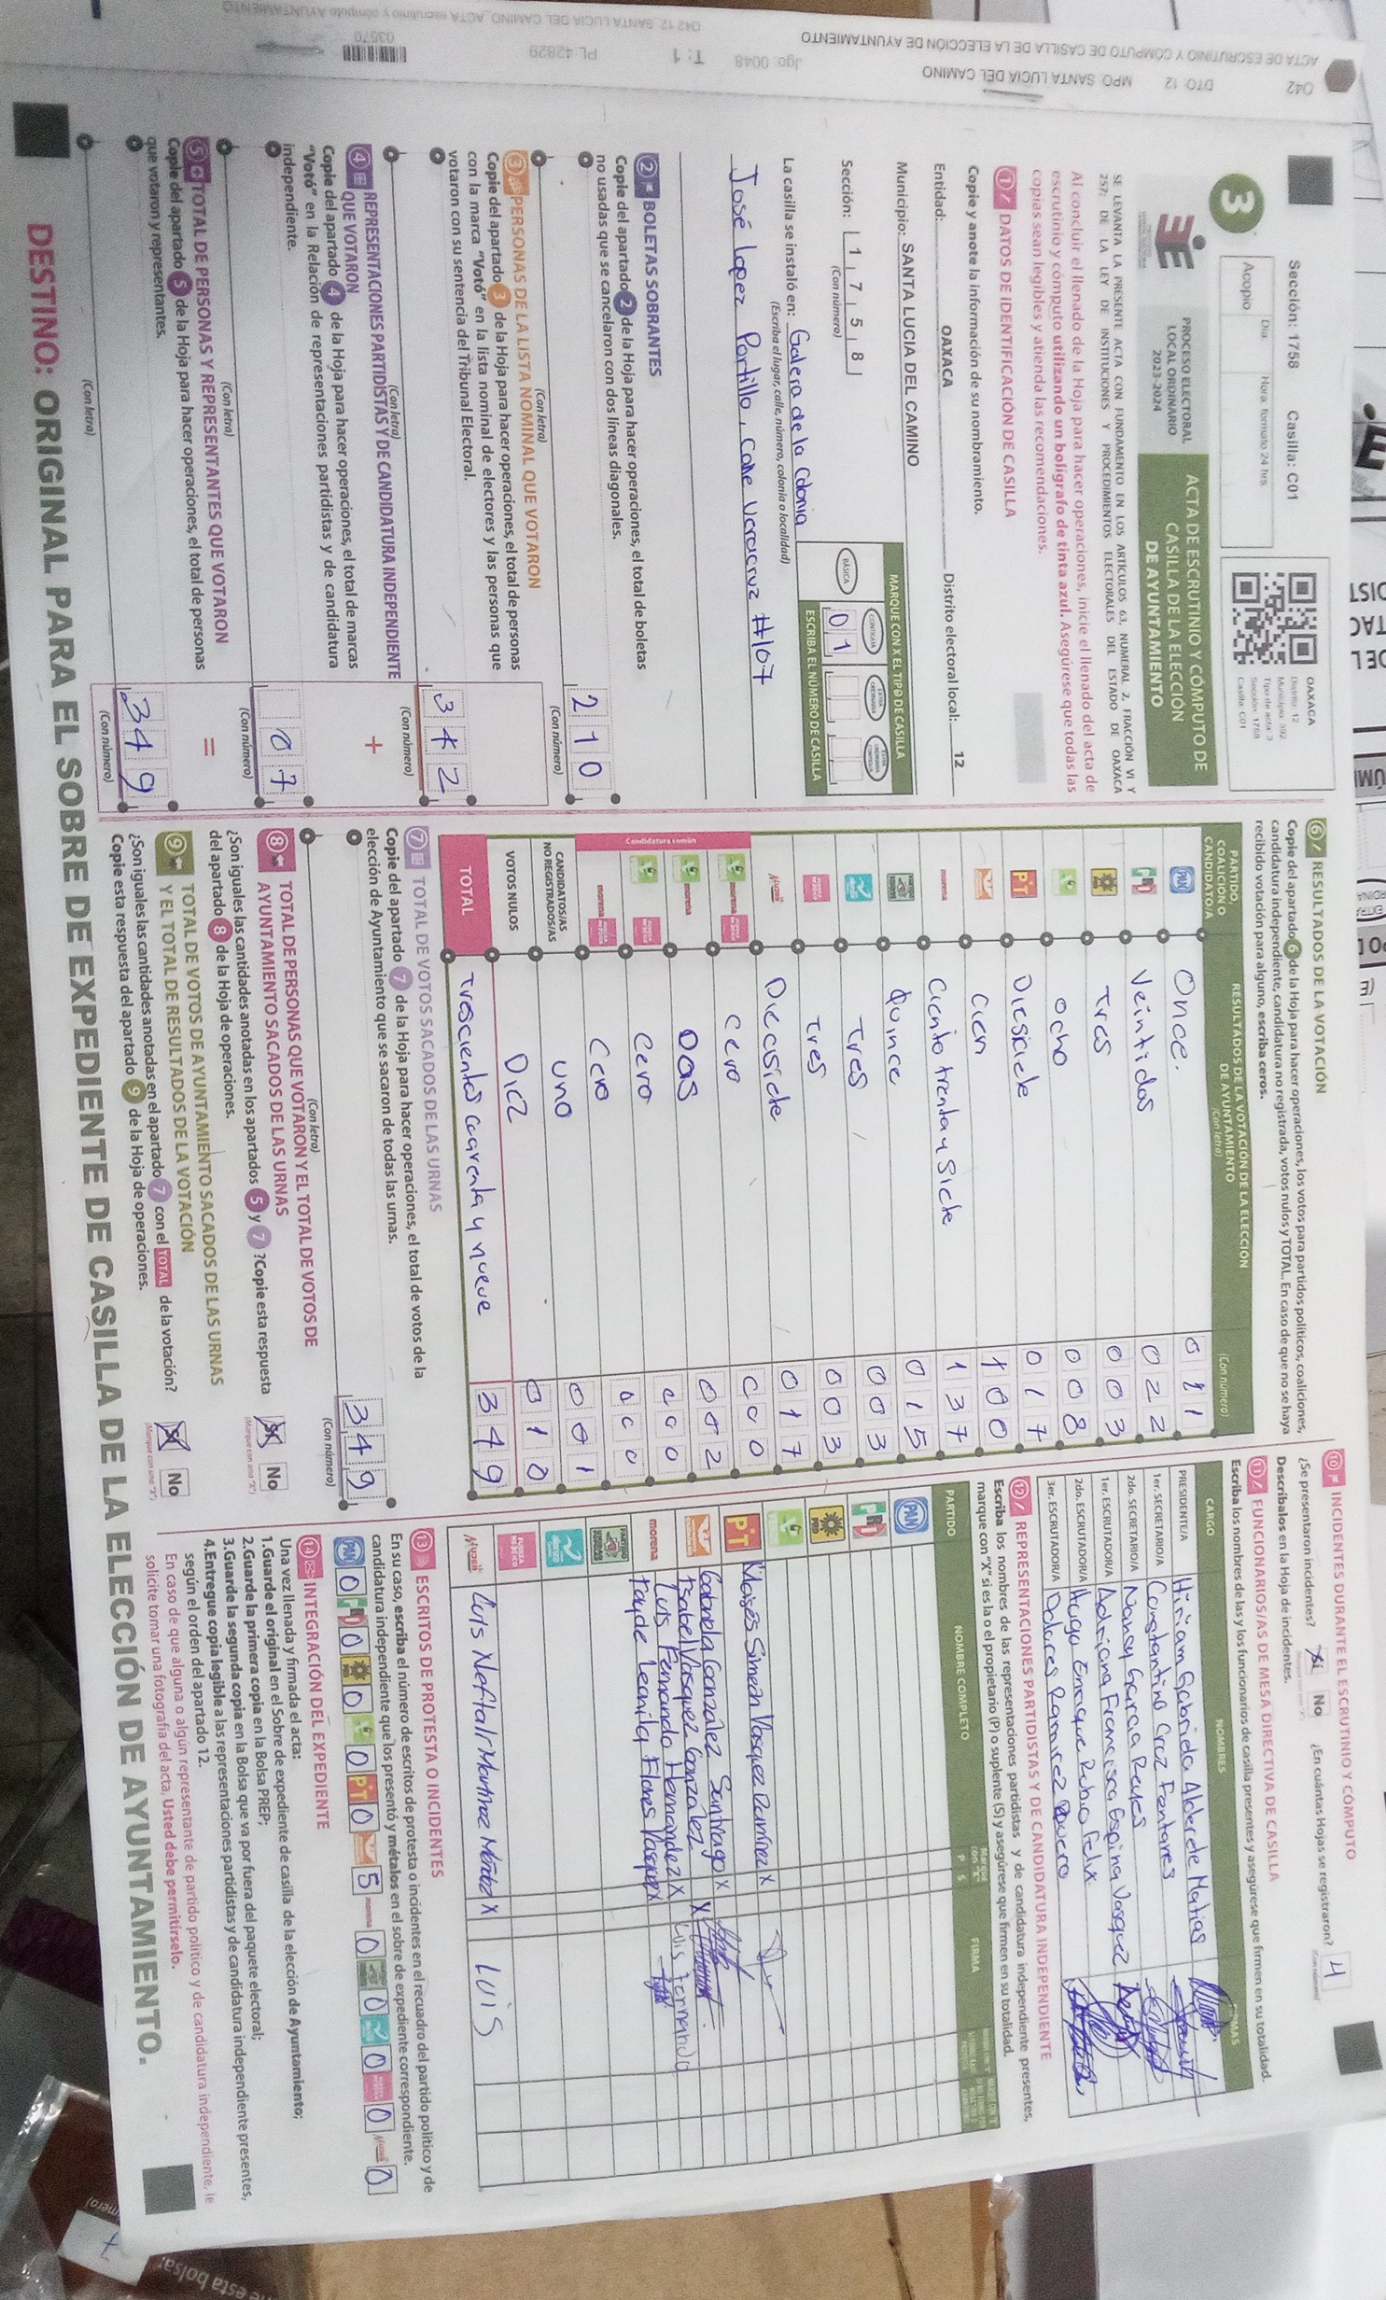 042 DTO. 12 MPO. SANTA LUCIA DEL CAMINO Jgo. 0048 T: 1 PL: 42829 03570
ACTA DE ESCRUTINIO Y CÓMPUTO DE CASILLA DE LA ELECCIÓN DE AYUNTAMIENTO
Sección: 1758 Casilla: C01
3
Acopio
Día
Hora: formato 24 hrs.
OAXACA
Distrito: 12
Tipo de acta: 3
Sección: 1758
Casilla: C01
PROCESO ELECTORAL
LOCAL ORDINARIO
2023-2024
ACTA DE ESCRUTINIO Y CÓMPUTO DE
CASILLA DE LA ELECCIÓN
DE AYUNTAMIENTO
SE LEVANTA LA PRESENTE ACTA CON FUNDAMENTO EN LOS ARTÍCULOS 63, NUMERAL 2, FRACCIÓN VI Y
257; DE LA LEY DE INSTITUCIONES Y PROCEDIMIENTOS ELECTORALES DEL ESTADO DE OAXACA
Al concluir el llenado de la Hoja para hacer operaciones, inicie el llenado del acta de
escrutinio y cómputo utilizando un bolígrafo de tinta azul. Asegúrese que todas las
copias sean legibles y atienda las recomendaciones.
1 DATOS DE IDENTIFICACIÓN DE CASILLA
Copie y anote la información de su nombramiento.
Entidad: OAXACA Distrito electoral local: 12
Municipio: SANTA LUCIA DEL CAMINO
MARQUE CON X EL TIPO DE CASILLA
Sección: 1 7 5 8
(Con número)
BÁSICA
0 1
ESCRIBA EL NÚMERO DE CASILLA
La casilla se instaló en: Galera de la Colonia
(Escriba el lugar, calle, número, colonia o localidad)
José lopez Portillo, Calle Veracruz #107
2 BOLETAS SOBRANTES
Copie del apartado 2 de la Hoja para hacer operaciones, el total de boletas
no usadas que se cancelaron con dos líneas diagonales.
210
(Con letra) (Con número)
3 PERSONAS DE LA LISTA NOMINAL QUE VOTARON
Copie del apartado 3 de la Hoja para hacer operaciones, el total de personas
con la marca "Votó" en la lista nominal de electores y las personas que
votaron con su sentencia del Tribunal Electoral.
342
(Con letra) (Con número)
4 REPRESENTACIONES PARTIDISTAS Y DE CANDIDATURA INDEPENDIENTE
QUE VOTARON
+
Copie del apartado 4 de la Hoja para hacer operaciones, el total de marcas
"Votó" en la Relación de representaciones partidistas y de candidatura
independiente.
07
(Con letra) (Con número)
5 TOTAL DE PERSONAS Y REPRESENTANTES QUE VOTARON
=
Copie del apartado 5 de la Hoja para hacer operaciones, el total de personas
que votaron y representantes.
349
(Con letra) (Con número)
6 RESULTADOS DE LA VOTACIÓN
Copie del apartado 6 de la Hoja para hacer operaciones, los votos para partidos políticos, coaliciones,
candidatura independiente, candidatura no registrada, votos nulos y TOTAL. En caso de que no se haya
recibido votación para alguno, escriba ceros.
PARTIDO, COALICIÓN O CANDIDATO/A
RESULTADOS DE LA VOTACIÓN DE LA ELECCIÓN
DE AYUNTAMIENTO
(Con letra) (Con número)
PAN Once. 011
PRI Veintidos 022
PRD Tres 003
Ocho 008
PT Diesisiete 017
Cien 100
morena Ciento treinta y Siete 137
Quince 015
Tres 003
Tres 003
Diecisiete 017
Candidatura común
morena Cero 000
morena Dos 002
Cero 000
morena Cero 000
CANDIDATOS/AS
NO REGISTRADOS/AS uno 001
VOTOS NULOS Diez 010
TOTAL Trescientos cuarenta y nueve 349
7 TOTAL DE VOTOS SACADOS DE LAS URNAS
Copie del apartado 7 de la Hoja para hacer operaciones, el total de votos de la
elección de Ayuntamiento que se sacaron de todas las urnas.
349
(Con letra) (Con número)
8 TOTAL DE PERSONAS QUE VOTARON Y EL TOTAL DE VOTOS DE
AYUNTAMIENTO SACADOS DE LAS URNAS
¿Son iguales las cantidades anotadas en los apartados 5 y 7 ? Copie esta respuesta
del apartado 8 de la Hoja de operaciones.
Sí No
9 TOTAL DE VOTOS DE AYUNTAMIENTO SACADOS DE LAS URNAS
Y EL TOTAL DE RESULTADOS DE LA VOTACIÓN
¿Son iguales las cantidades anotadas en el apartado 7 con el TOTAL de la votación?
Copie esta respuesta del apartado 9 de la Hoja de operaciones.
Sí No
10 INCIDENTES DURANTE EL ESCRUTINIO Y CÓMPUTO
¿Se presentaron incidentes? Sí No ¿En cuántas Hojas se registraron? 4
Descríbalos en la Hoja de incidentes.
11 FUNCIONARIOS/AS DE MESA DIRECTIVA DE CASILLA
Escriba los nombres de las y los funcionarios de casilla presentes y asegúrese que firmen en su totalidad.
CARGO NOMBRES FIRMAS
PRESIDENTE/A Miriam Gabriela Alderete Matias
1er. SECRETARIO/A Constantino Cruz Fontanes
2do. SECRETARIO/A Nancy Garcia Reyes
1er. ESCRUTADOR/A Adriana Francisca Espina Vasquez
2do. ESCRUTADOR/A Hugo Enrique Rubio Felix
3er. ESCRUTADOR/A Dolores Ramirez Rivera
12 REPRESENTACIONES PARTIDISTAS Y DE CANDIDATURA INDEPENDIENTE
Escriba los nombres de las representaciones partidistas y de candidatura independiente presentes,
marque con "X" si es la o el propietario (P) o suplente (S) y asegúrese que firmen en su totalidad.
PARTIDO NOMBRE COMPLETO P S FIRMA
PAN
PRI
PRD
PT Moisés Simeón Vasquez Ramírez X
Gabriela González Santiago X
Isabel Vasquez González X
morena Luis Fernando Hernandez X Luis Fernando
Fayde Leonila Flores Vasquez X
Luis Neftali Martinez Méndez X LUIS
13 ESCRITOS DE PROTESTA O INCIDENTES
En su caso, escriba el número de escritos de protesta o incidentes en el recuadro del partido político y de
candidatura independiente que los presentó y métalos en el sobre de expediente correspondiente.
PAN 0 PRI 0 PRD 0 0 PT 0 5 morena 0 0 0 0 0
14 INTEGRACIÓN DEL EXPEDIENTE
Una vez llenada y firmada el acta:
1. Guarde el original en el Sobre de expediente de casilla de la elección de Ayuntamiento;
2. Guarde la primera copia en la Bolsa PREP;
3. Guarde la segunda copia en la Bolsa que va por fuera del paquete electoral;
4. Entregue copia legible a las representaciones partidistas y de candidatura independiente presentes,
según el orden del apartado 12.
En caso de que alguna o algún representante de partido político y de candidatura independiente, le
solicite tomar una fotografía del acta, Usted debe permitírselo.
DESTINO: ORIGINAL PARA EL SOBRE DE EXPEDIENTE DE CASILLA DE LA ELECCIÓN DE AYUNTAMIENTO.